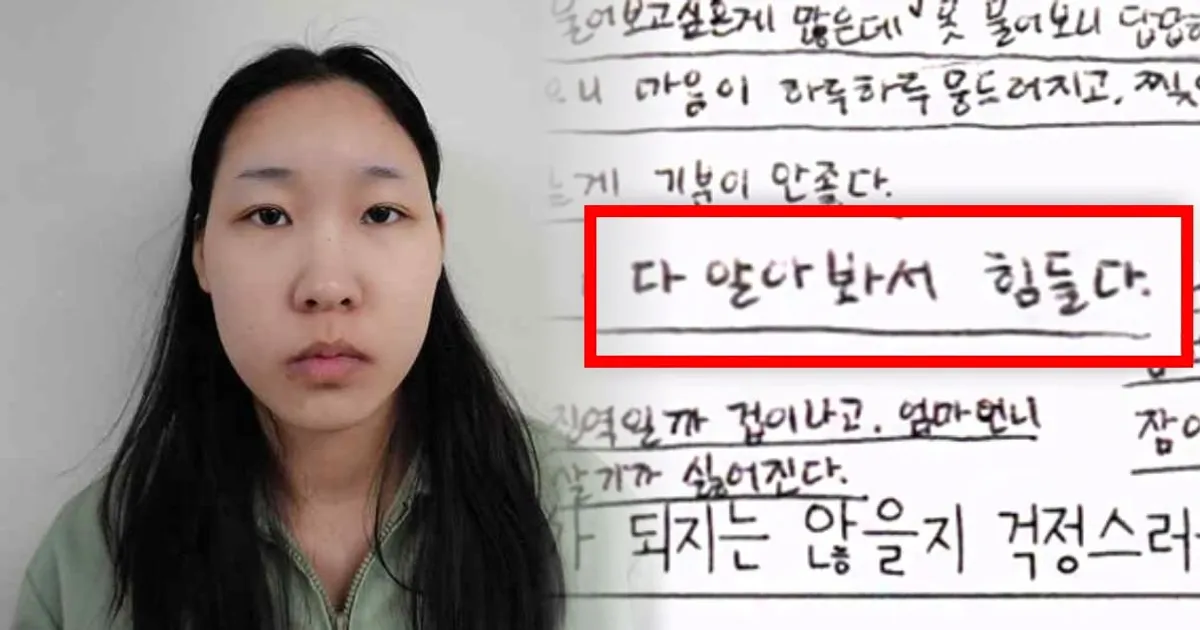 물어보고싶은게 많은데 못 물어보니 답답하
으니 마음이 하루하루 뭉드러지고, 찢
는게 기분이 안좋다.
다 알아봐서 힘들다.
진역일까 겁이나고, 엄마언니
살기가 싫어진다.
잠
되지는 않을지 걱정스러